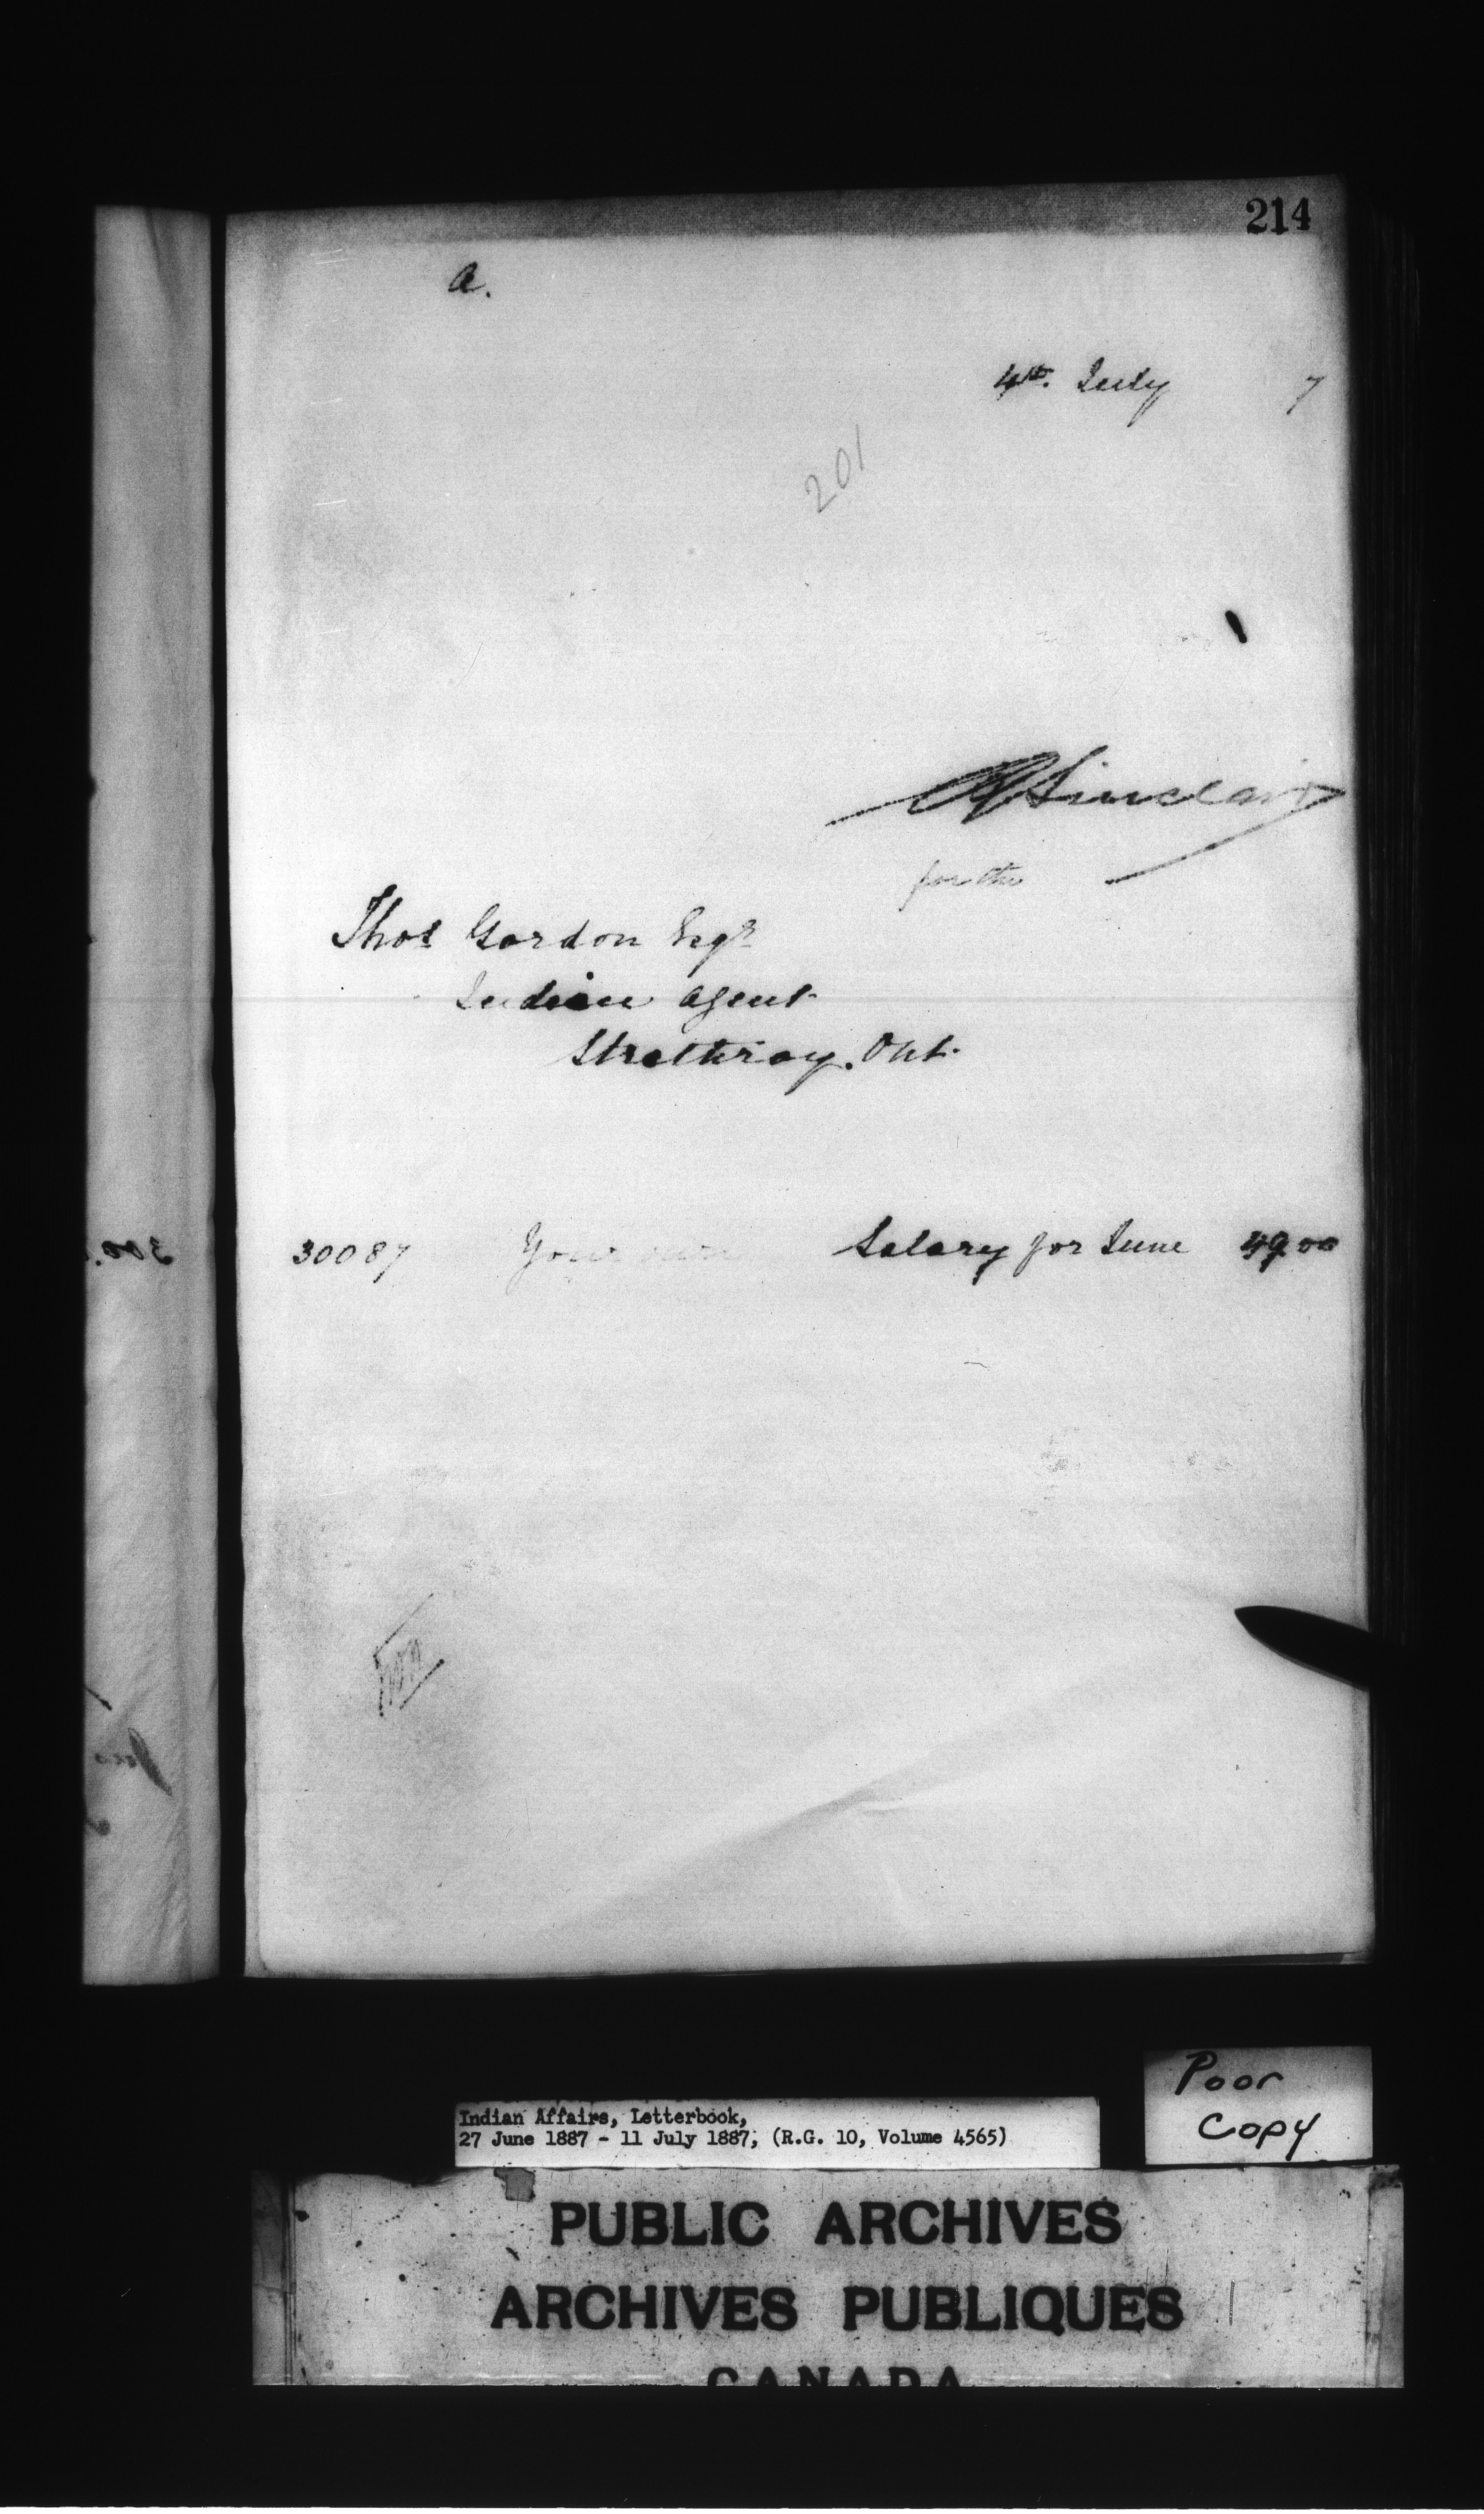 214
a.
4th. July 7
201
A Sinclair
for the
Thos Gordon Esqr
Indian Agent
Strathroy. Ont.
30087 Your Salary for June 49.00
Poor
Copy
Indian Affairs, Letterbook,
27 June 1887 - 11 July 1887, (R.G. 10, Volume 4565)
PUBLIC ARCHIVES
ARCHIVES PUBLIQUES
CANADA